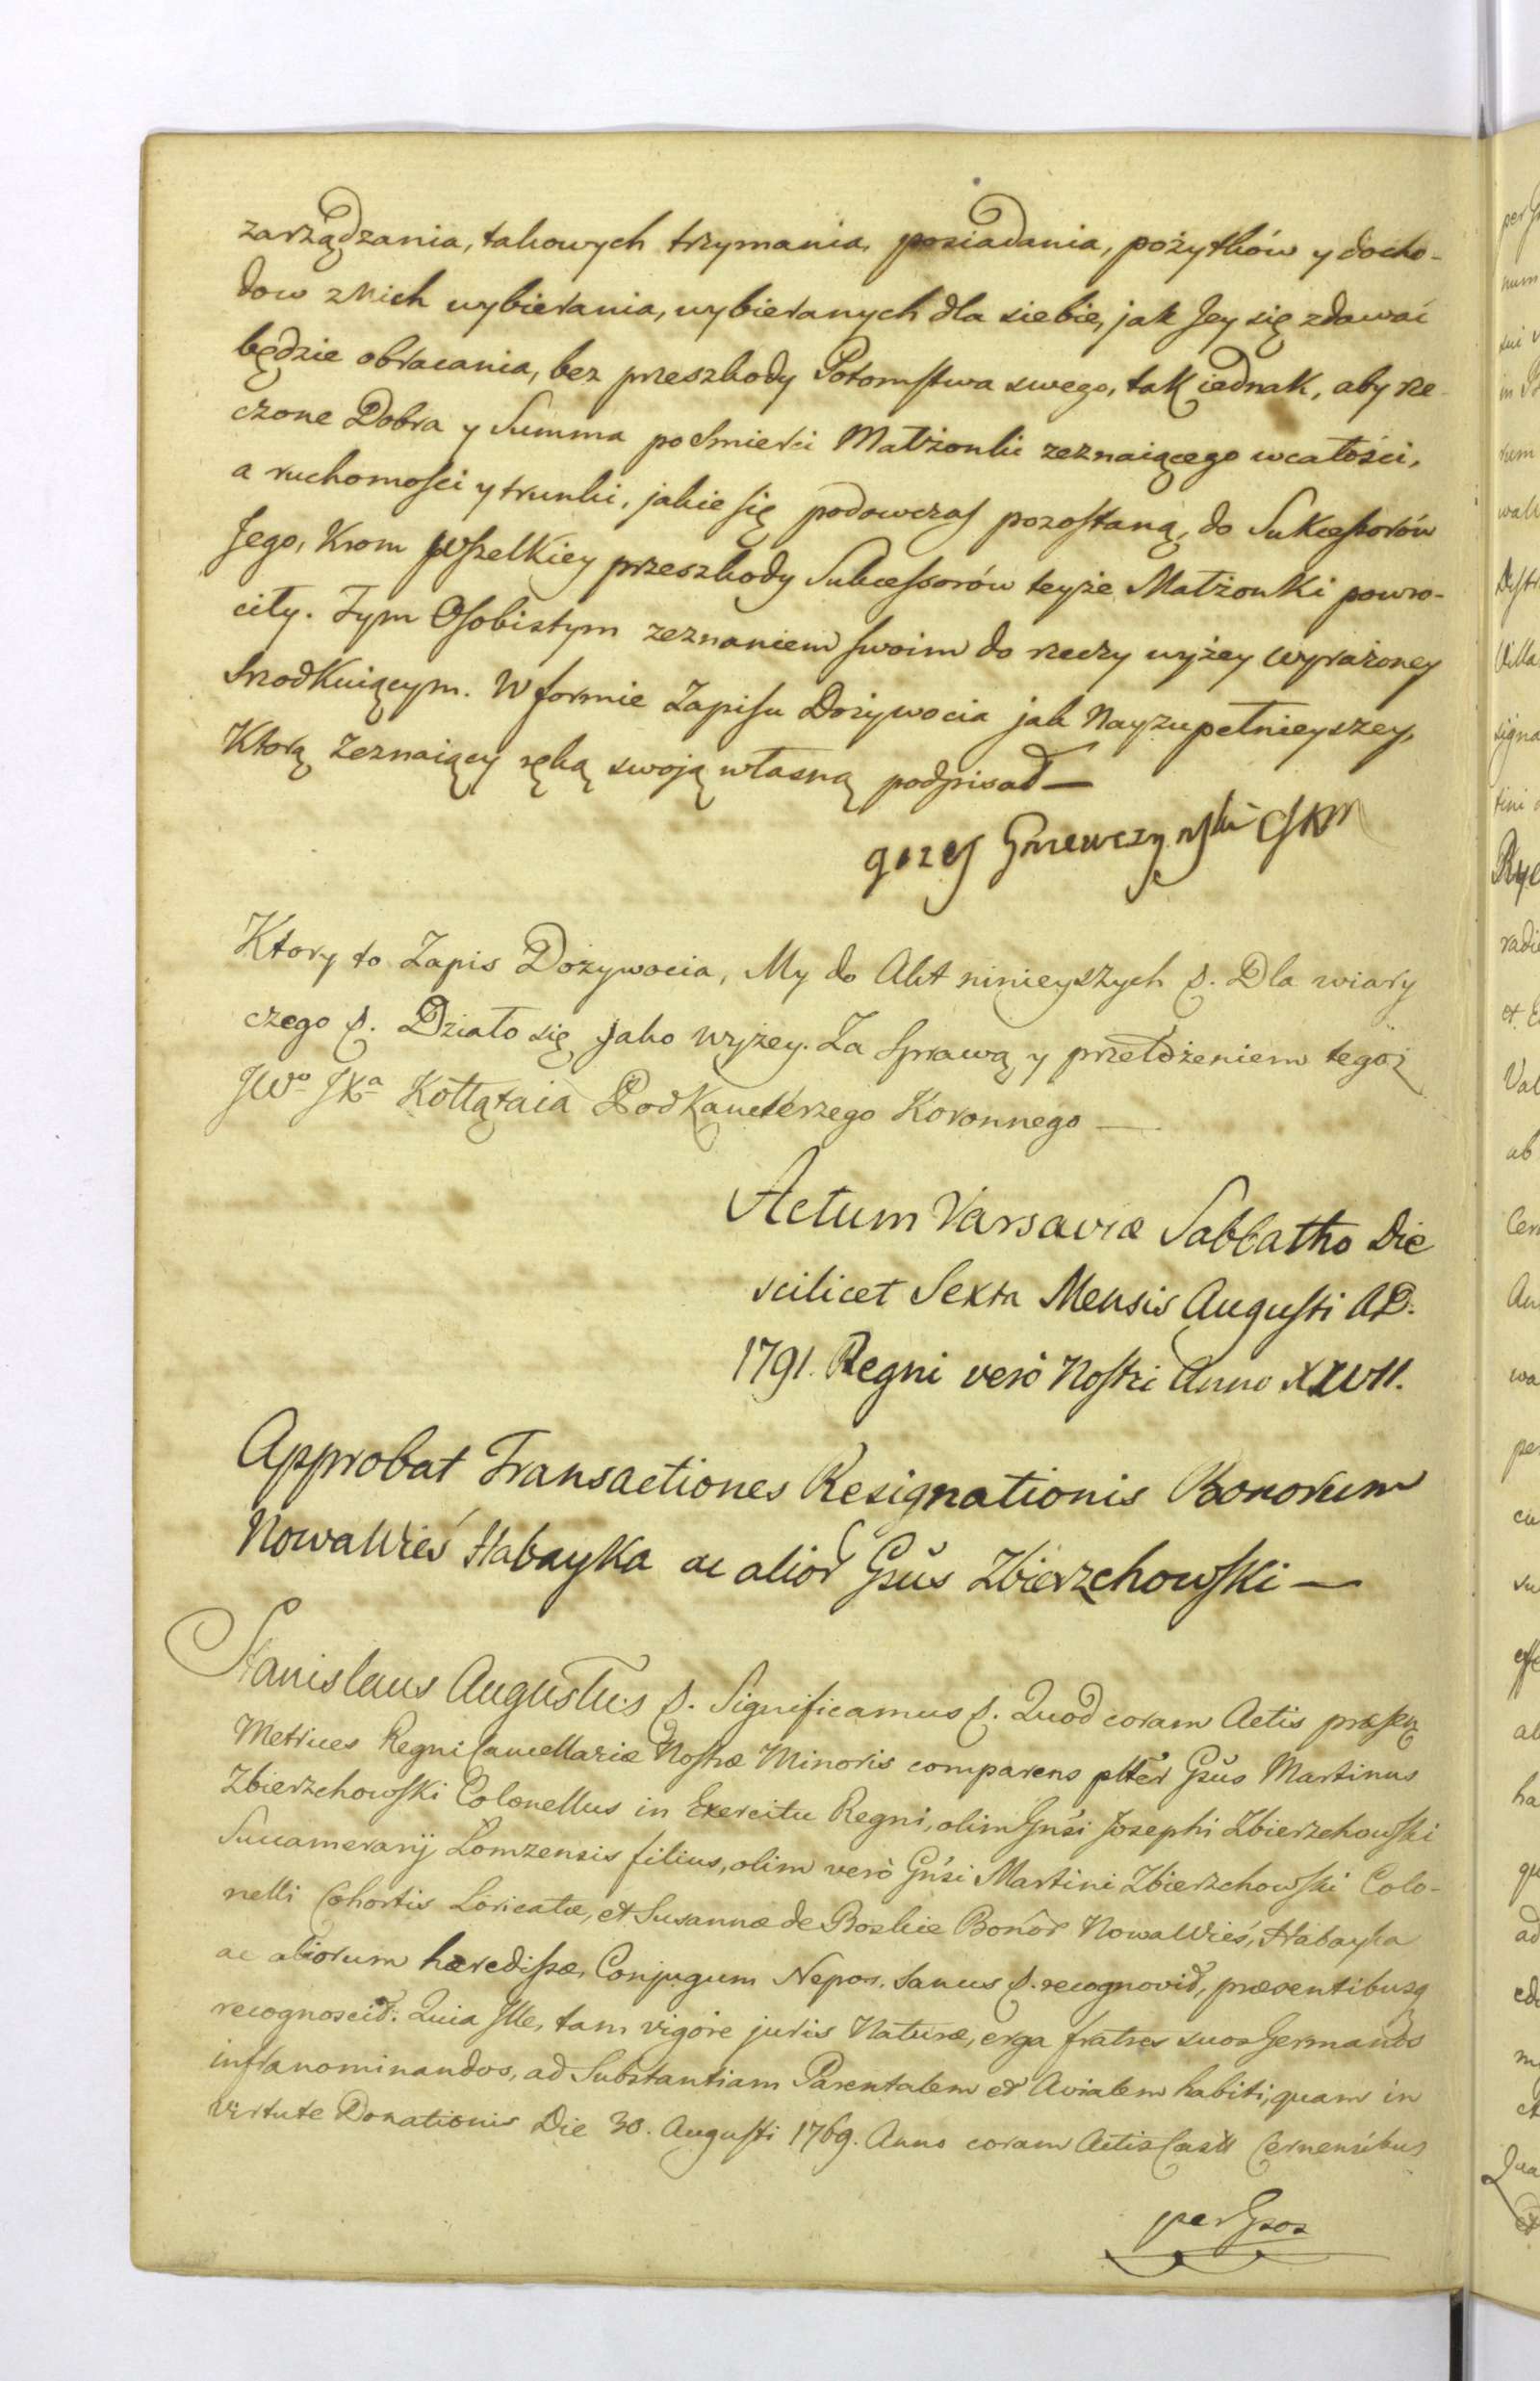 zarządzania, takowych trzymania, posiadania, pożytków y docho-
dow z nich wybierania, wybieranych dla siebie, jak Jey się zdawać
będzie obracania, bez przeszkody Potomstwa swego, tak iednak, aby rze-
czone Dobra y Summa po Smierci Małżonki zeznaiącego wcałości,
a ruchomości y trunki, jakie się podowczas pozostaną, do Sukcessorów
Jego, Krom Wszelkiey przeszkody Sukcessorów teyże Małżonki powro-
ciły. Tym Osobistym zeznaniem swoim do rzeczy wyżey wyrażoney
Srzodkuiącym. W formie Zapisu Dożywocia jak Nayzupełnieyszey,
Ktorą Zeznaiący ręką swoją własną podpisał —
Ktory to Zapis Dożywocia, My do Akt ninieyszych &. Dla wiary
czego &. Działo się jako wyżey. Za Sprawą y przełożeniem tegoż
JWo JXa Kołłątaia PodKanclerzego Koronnego —
Actum Varsaviæ Sabbatho Die
scilicet Sexta Mensis Augusti AD.
1791. Regni verò Nostri Anno XXVII.
Approbat Transactiones Resignationis Bonorum
NowaWieś Habayka ac alior Gsus Zbierzchowski —
Stanislaus Augustus &. Significamus &. Quod coram Actis præsen
Metrices Regni Cancellariæ Nostræ Minoris comparens plter Gsus Martinus
Zbierzchowski Colonellus in Exercitu Regni, olim Gnsi Josephi Zbierzchowski
Succamerarij Lomzensis filius, olim verò Gnsi Martini Zbierzchowski Colo-
nelli Cohortis Loricatæ, et Susannæ de Boskie Bonor NowaWieś, Habayka
ac aliorum hæredissæ, Conjugum Nepos. Sanus &. recognovit, præsentibusq
recognoscit: Quia Ille, tam vigore juris Naturæ, erga fratres suos Germanos
infranominandos, ad Substantiam Parentalem et Avialem habiti, quam in
virtute Donationis Die 30. Augusti 1769. Anno coram Actis Castr Cernensibus
per Gsos